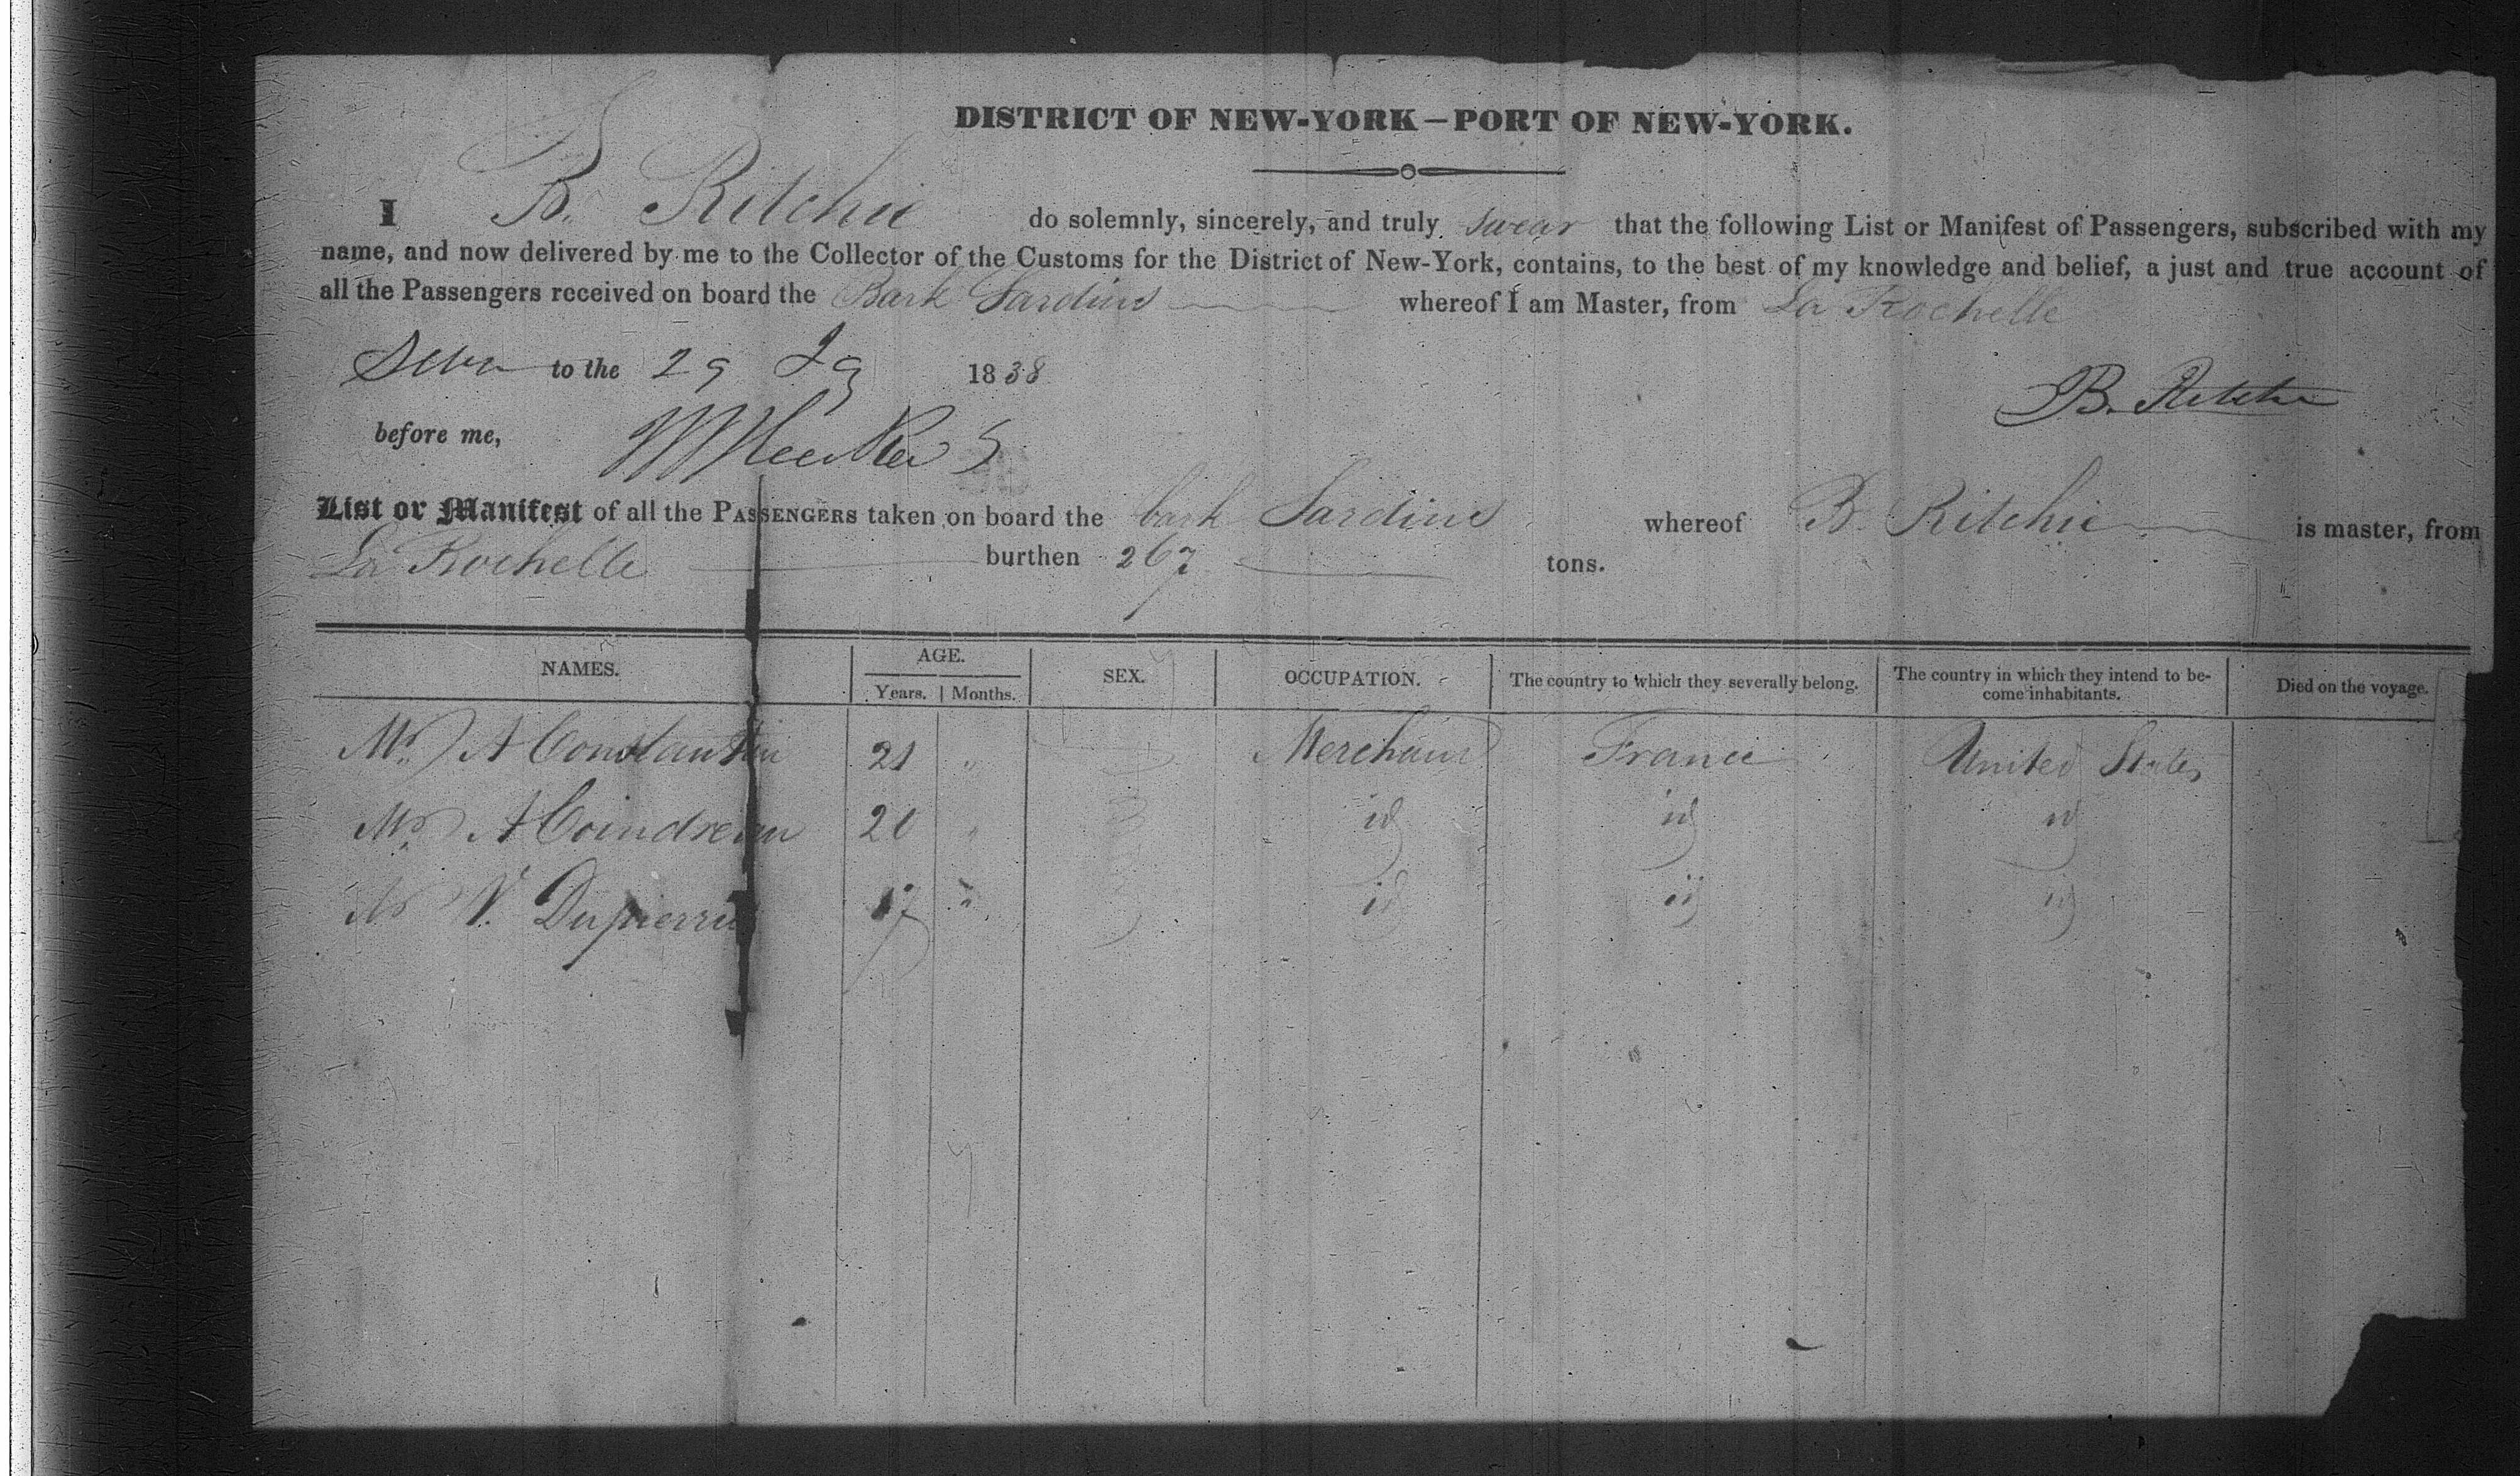 DISTRICT OF NEW-YORK—PORT OF NEW-YORK.
I B. Ritchie do solemnly, sincerely, and truly swear that the following List or Manifest of Passengers, subscribed with my
name, and now delivered by me to the Collector of the Customs for the District of New-York, contains, to the best of my knowledge and belief, a just and true account of
all the Passengers received on board the Bark Sardius whereof I am Master, from La Rochelle
to the 29 1838
B. Ritchie
before me,
List or Manifest of all the PASSENGERS taken on board the bark Sardius whereof B. Ritchie is master, from
La Rochelle burthen 267 tons.
NAMES. AGE. SEX. OCCUPATION. The country to which they severally belong. The country in which they intend to be-
come inhabitants. Died on the voyage.
Years. Months.
Mr A Constantin 21 " Merchant France United States
Mr A Coindreau " id id id
Mr V. Dupierris 17 " id id id